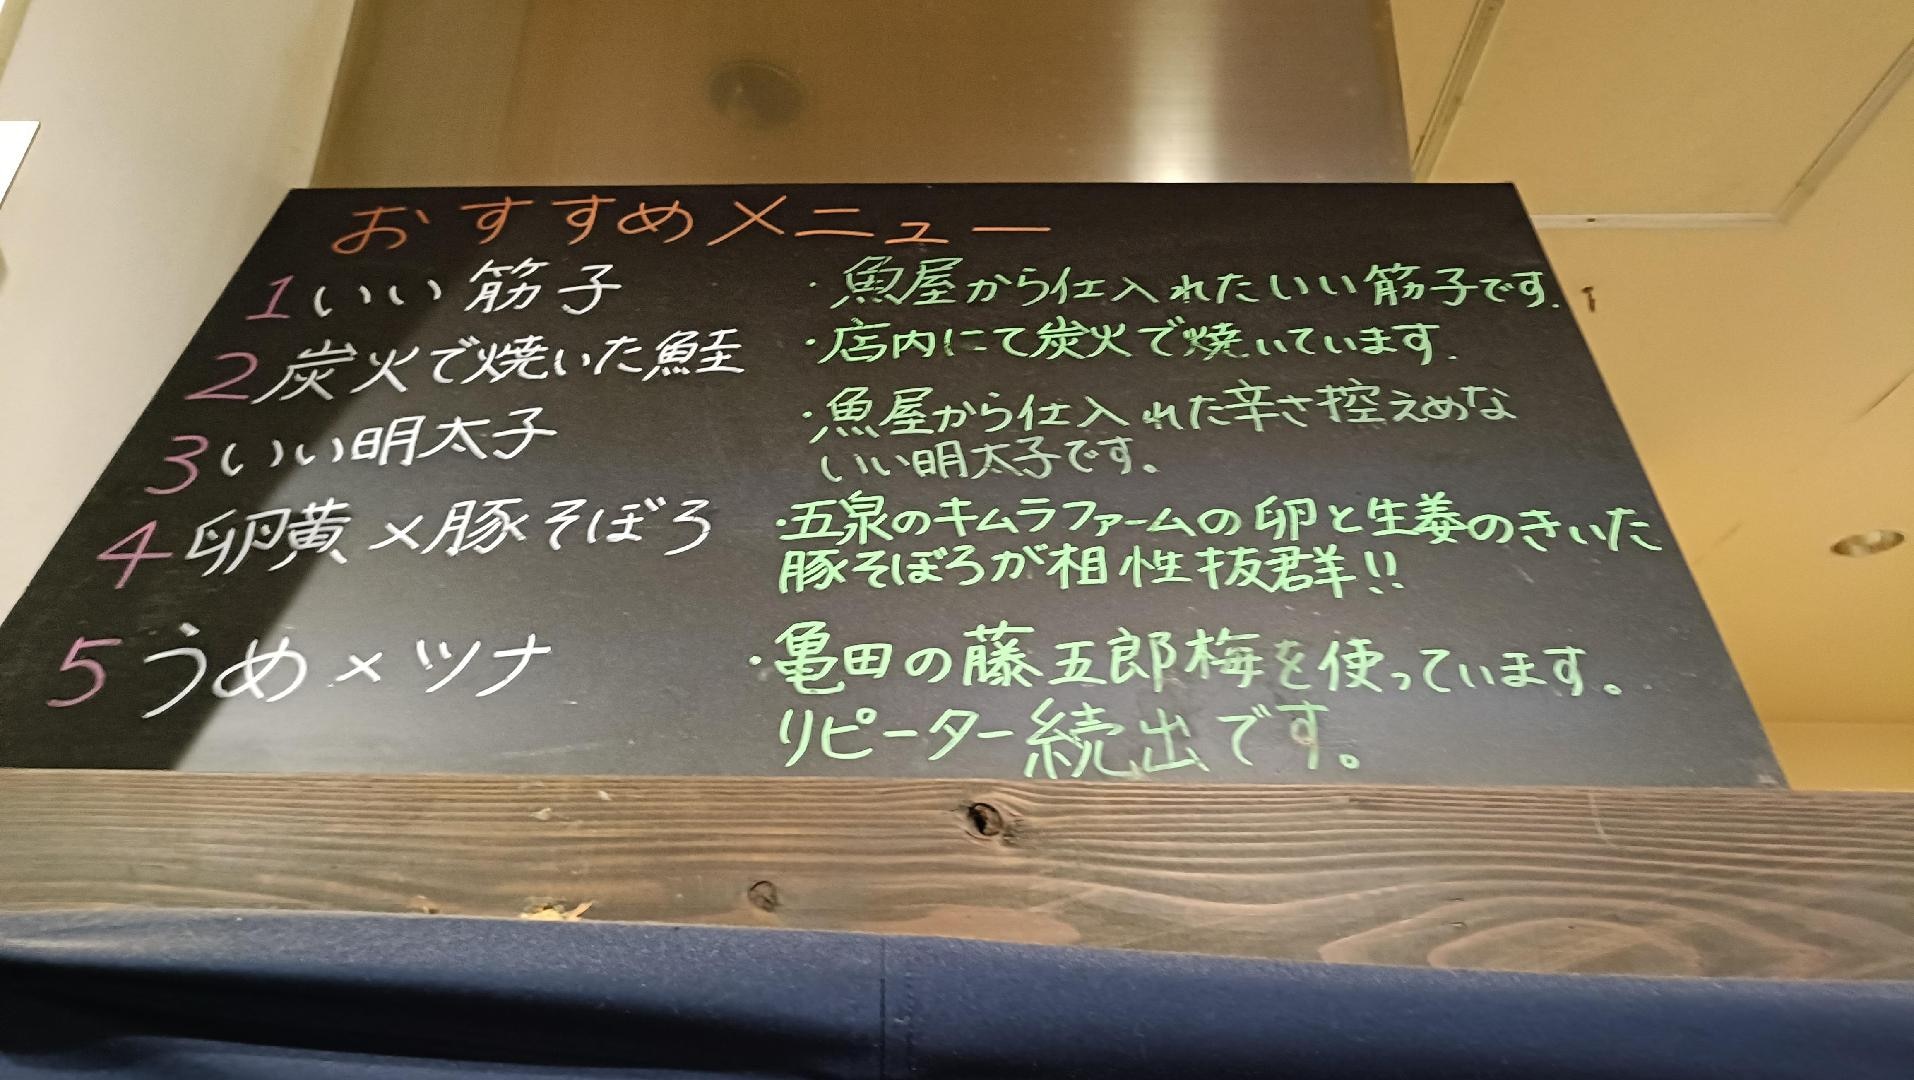 おすすめメニュー
1 いい筋子
・魚屋から仕入れたいい筋子です.
2 炭火で焼いた鮭
・店内にて炭火で焼いています.
3 いい明太子
・魚屋から仕入れた辛さ控えめな
いい明太子です。
4 卵黄×豚そぼろ
・五泉のキムラファームの卵と生姜のきいた
豚そぼろが相性抜群!!
5 うめ×ツナ
・亀田の藤五郎梅を使っています。
リピーター続出です。